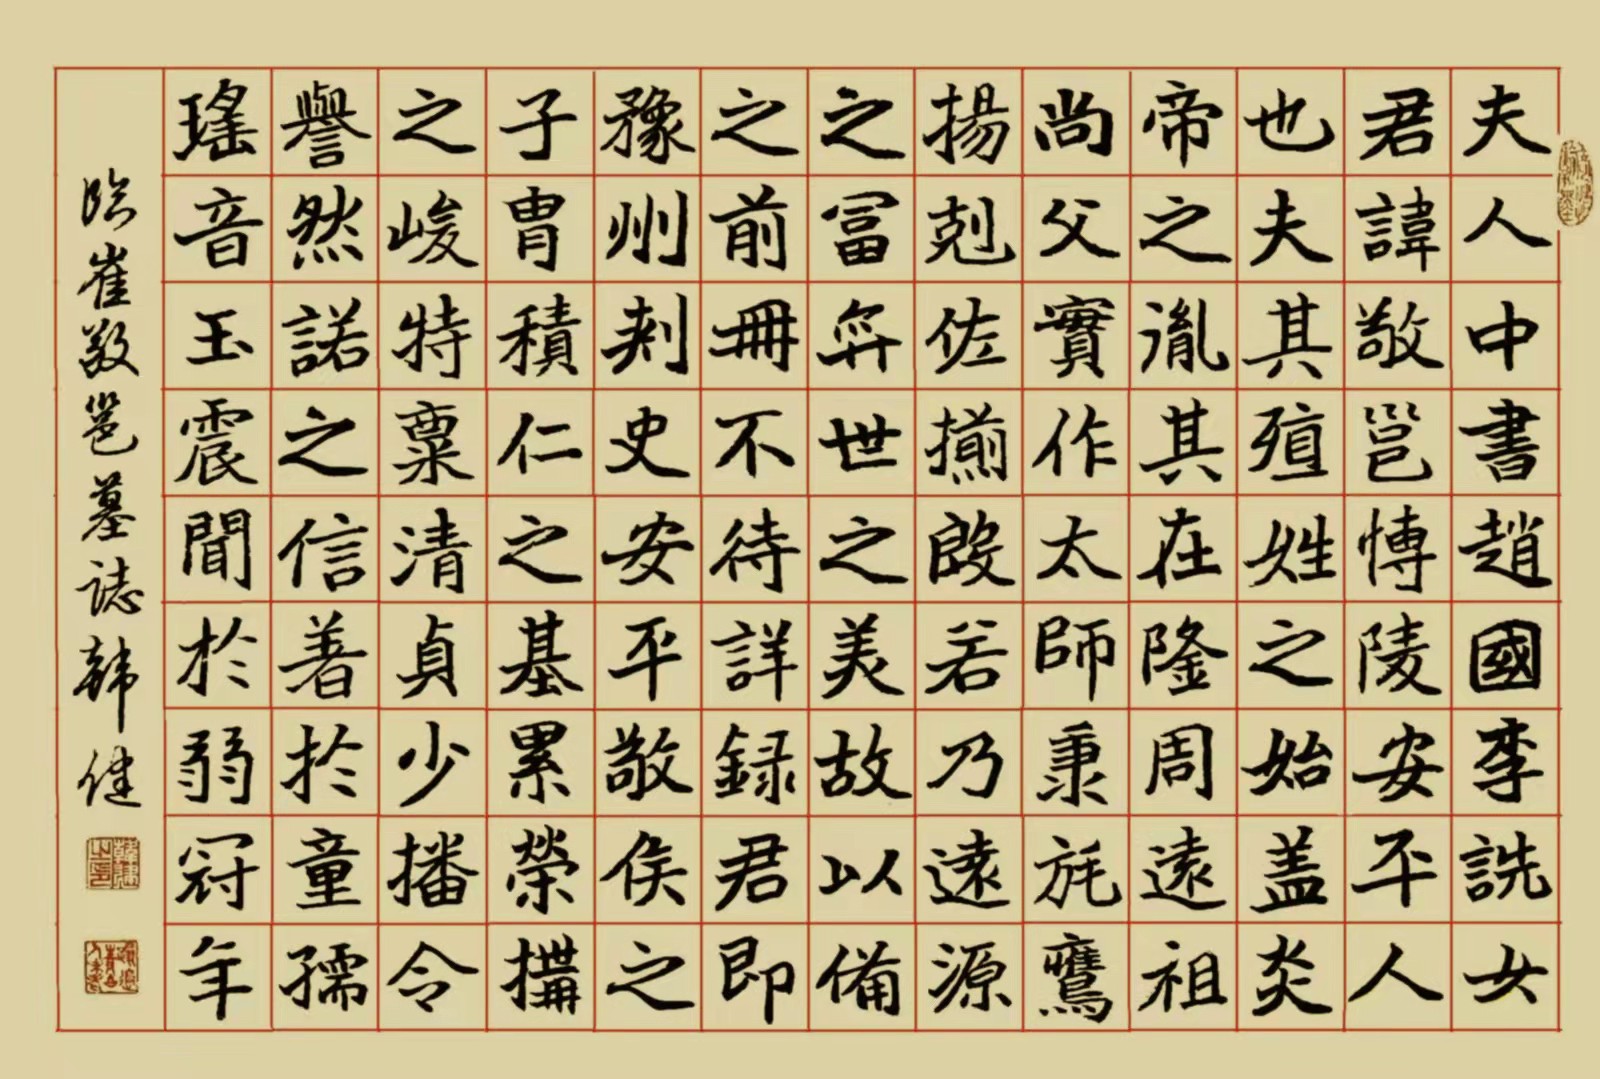 夫人中書趙國李詵女
君諱敬邕博陵安平人
也夫其殖姓之始盖炎
帝之胤其在隆周遠祖
尚父實作太師秉旄鷹
揚剋佐揃殷若乃遠源
之冨弈世之美故以備
之前冊不待詳録君即
豫州刾史安平敬侯之
子胄積仁之基累榮搆
之峻特稟清貞少播令
譽然諾之信著於童孺
瑤音玉震聞於弱冠年
临崔敬邕墓誌韩健